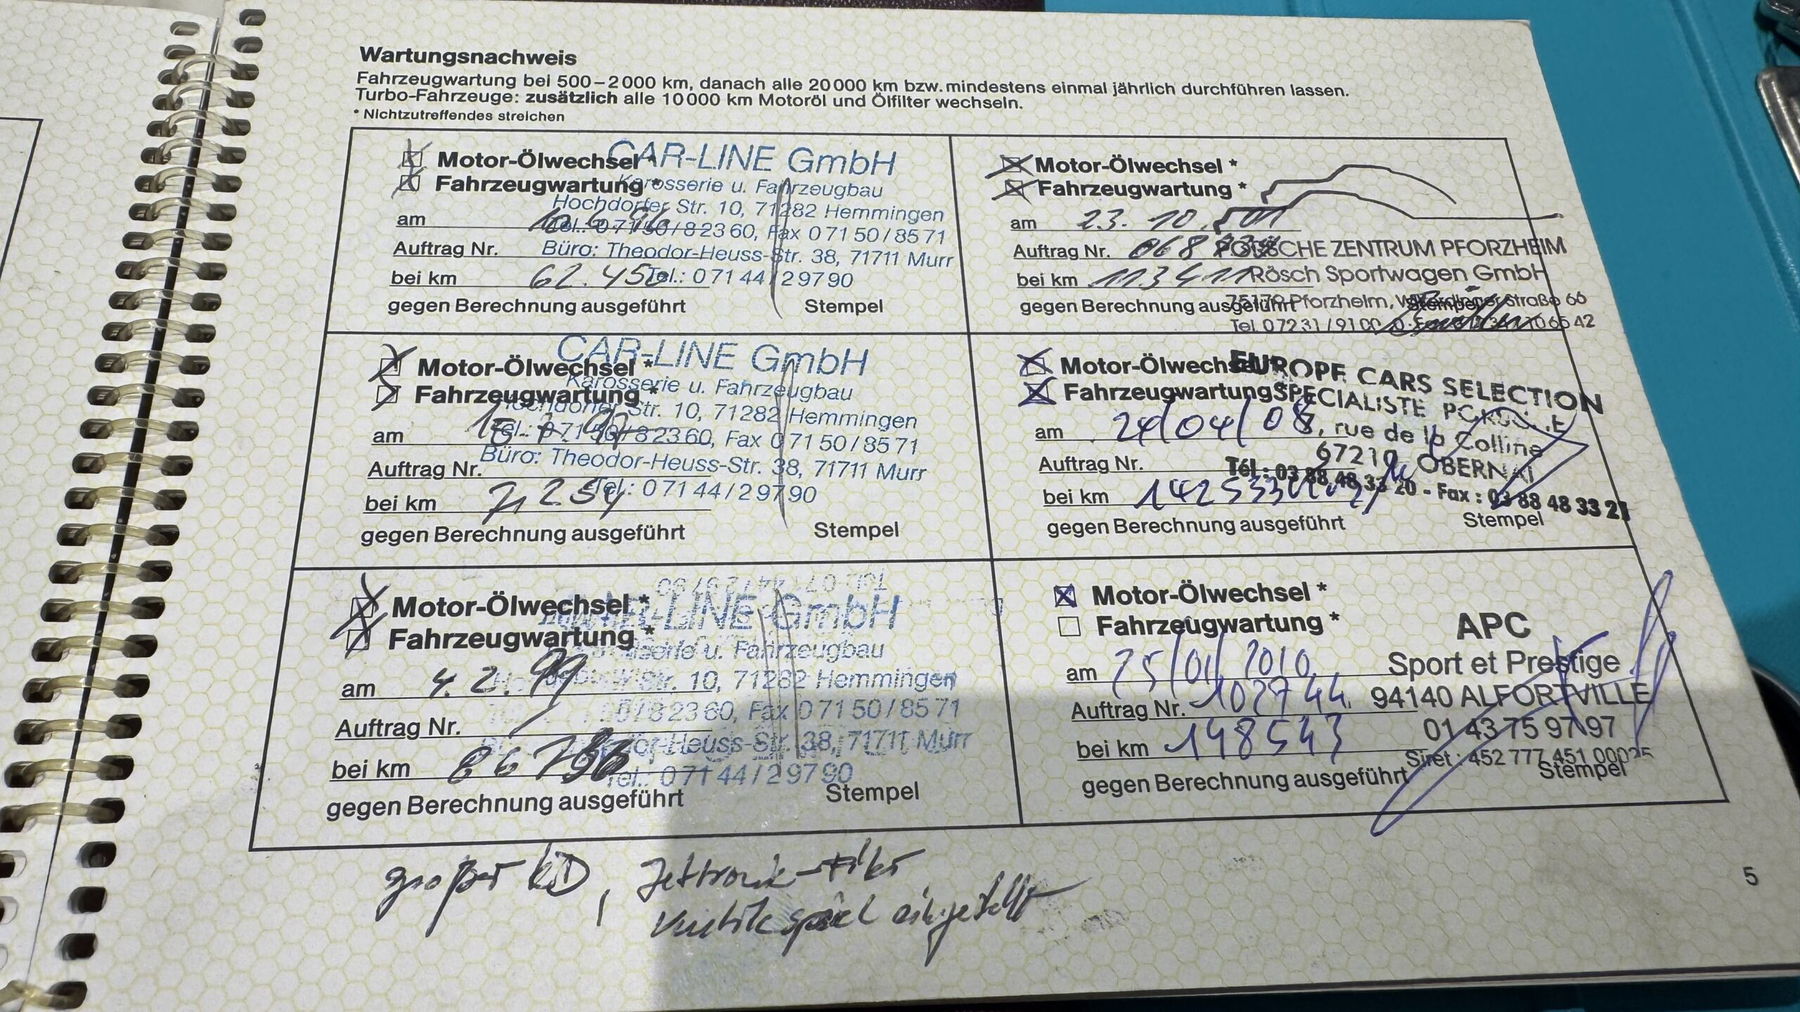 Wartungsnachweis
Fahrzeugwartung bei 500–2 000 km, danach alle 20 000 km bzw. mindestens einmal jährlich durchführen lassen.
Turbo-Fahrzeuge: zusätzlich alle 10 000 km Motoröl und Ölfilter wechseln.
* Nichtzutreffendes streichen
Motor-Ölwechsel *
Fahrzeugwartung *
am
Auftrag Nr.
bei km 62.450
gegen Berechnung ausgeführt
Stempel
CAR-LINE GmbH
Karosserie u. Fahrzeugbau
Hochdorfer Str. 10, 71282 Hemmingen
Tel.: 0 71 50 / 8 23 60, Fax 0 71 50 / 85 71
Büro: Theodor-Heuss-Str. 38, 71711 Murr
Tel.: 0 71 44 / 2 97 90
Motor-Ölwechsel *
Fahrzeugwartung *
am 23. 10.
Auftrag Nr.
bei km 113411
gegen Berechnung ausgeführt
Stempel
PORSCHE ZENTRUM PFORZHEIM
Rösch Sportwagen GmbH
75179 Pforzheim, Wilferdinger Straße 66
Motor-Ölwechsel *
Fahrzeugwartung *
am
Auftrag Nr.
bei km
gegen Berechnung ausgeführt
Stempel
CAR-LINE GmbH
Karosserie u. Fahrzeugbau
Hochdorfer Str. 10, 71282 Hemmingen
Tel.: 0 71 50 / 8 23 60, Fax 0 71 50 / 85 71
Büro: Theodor-Heuss-Str. 38, 71711 Murr
Tel.: 0 71 44 / 2 97 90
Motor-Ölwechsel *
Fahrzeugwartung *
am 24/04/08
Auftrag Nr.
bei km 142533
gegen Berechnung ausgeführt
Stempel
EUROPE CARS SELECTION
SPECIALISTE PORSCHE
rue de la Colline
67210 OBERNAI
Tél : 03 88 48 33 20 - Fax : 03 88 48 33 21
Motor-Ölwechsel *
Fahrzeugwartung *
am 4. 2. 99
Auftrag Nr.
bei km
gegen Berechnung ausgeführt
Stempel
CAR-LINE GmbH
Karosserie u. Fahrzeugbau
Str. 10, 71282 Hemmingen
Fax 0 71 50 / 85 71
Theodor-Heuss-Str. 38, 71711 Murr
Tel.: 0 71 44 / 2 97 90
Motor-Ölwechsel *
Fahrzeugwartung *
am 25/01/2010
Auftrag Nr. 102744
bei km 148543
gegen Berechnung ausgeführt
Stempel
APC
Sport et Prestige
94140 ALFORTVILLE
01 43 75 97 97
Siret : 452 777 451 00025
großer KD, Jettronik-Filter
Ventilspiel eingestellt
5